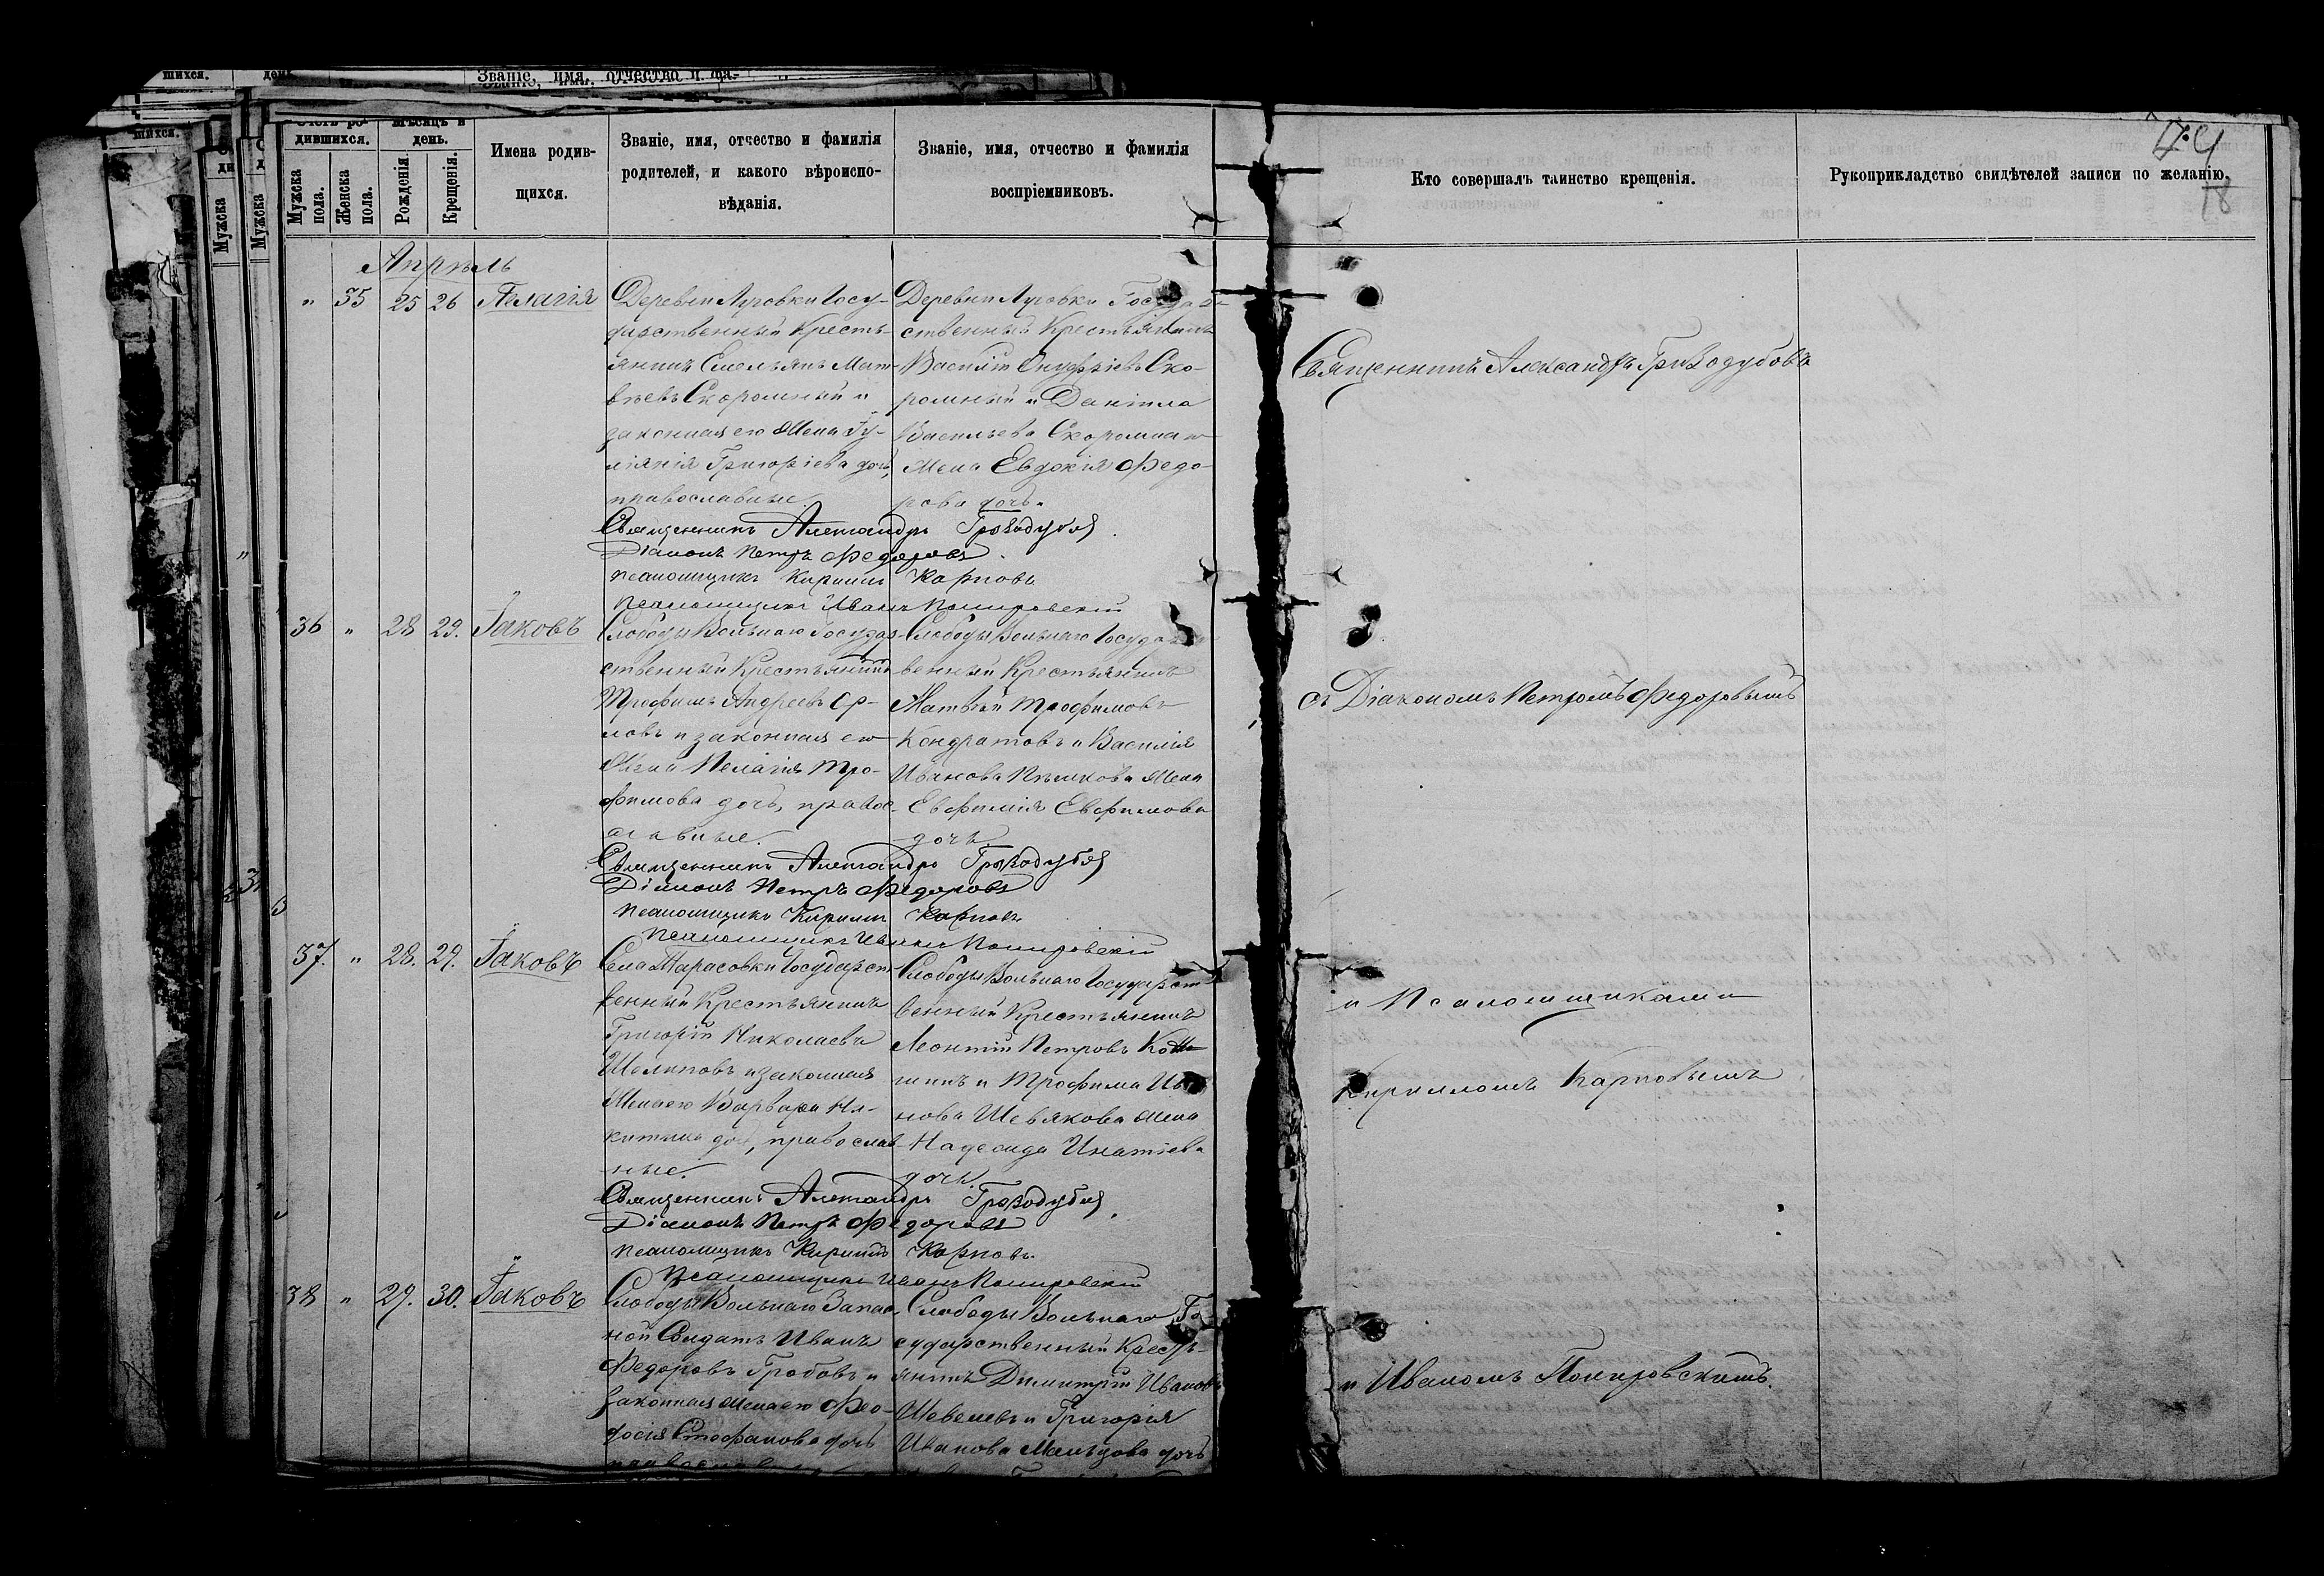 шихся.
Званіе, имя, отчество и фа-
дившихся.
Мѣсяцъ и день.
Мужска пола.
Женска пола.
Рожденія.
Крещенія.
Имена родив-
щихся.
Званіе, имя, отчество и фамилія
родителей, и какого вѣроиспо-
вѣданія.
Званіе, имя, отчество и фамилія
воспріемниковъ.
Кто совершалъ таинство крещенія.
Рукоприкладство свидѣтелей записи по желанію.
78
Апрѣль
" 35 25 26 Пелагія
Деревни Луговки Госу-
дарственный Кресть-
янинъ Емельянъ Мат-
вѣевъ Скоромный и
законная его жена Іу-
ліянія Григоріева дочь,
православные
Деревни Луговки Государ-
ственный Крестьянинъ
Василій Онуфріевъ Ско-
ромный и Даніила
Васильева Скоромнаго
жена Евдокія Федо-
рова дочь.
Священникъ Александръ Гриводубовъ
Священникъ Александръ
Діаконъ Петръ Федоровъ
псаломщикъ Кириллъ Карповъ
Псаломщикъ Иванъ
36 " 28 29. Іаковъ
Слободы Вольнаго Государ-
ственный Крестьянинъ
Трофимъ Андреевъ Ор-
ловъ и законная его
жена Пелагія Тро-
фимова дочь, правос-
лавные.
Слободы Вольнаго Государст-
венный Крестьянинъ
Матвѣй Трофимовъ
Кондратовъ и Василія
Иванова жена
Евфимія Евфимова
дочь
съ Діакономъ Петромъ Федоровымъ
Священникъ Александръ
Діаконъ Петръ Федоровъ
псаломщикъ Кириллъ Карповъ
Псаломщикъ Иванъ
37. " 28. 29. Іаковъ
Села Тарасовки Государст-
венный Крестьянинъ
Григорій Николаевъ
и законная
жена его Варвара Ни-
китина дочь, православ-
ные.
Слободы Вольнаго Государст-
венный Крестьянинъ
Леонтій Петровъ
и Трофима Ива-
нова Шевякова жена
Надежда Игнатіева
дочь.
и Псаломщиками
Кирилломъ Карповымъ
Священникъ Александръ
Діаконъ Петръ Федоровъ
псаломщикъ Кириллъ Карповъ
Псаломщикъ Иванъ
38 " 29. 30. Іаковъ
Слободы Вольнаго Запас-
ной Солдатъ Иванъ
Федоровъ Гробовъ и
законная жена его Фео-
досія Стефанова дочь
Слободы Вольнаго Го-
сударственный Кресть-
янинъ Димитрій Ивановъ
Шевелевъ и Григорія
Иванова дочь
и Иваномъ